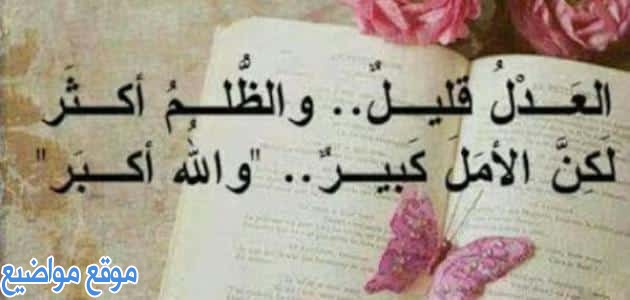 العَـدْلُ قليـلٌ.. والظُّلـمُ أكـثَر
لَكِنَّ الأمَلَ كَبيـرٌ.. "واللهُ أكـبَر"
موقع مواضيع